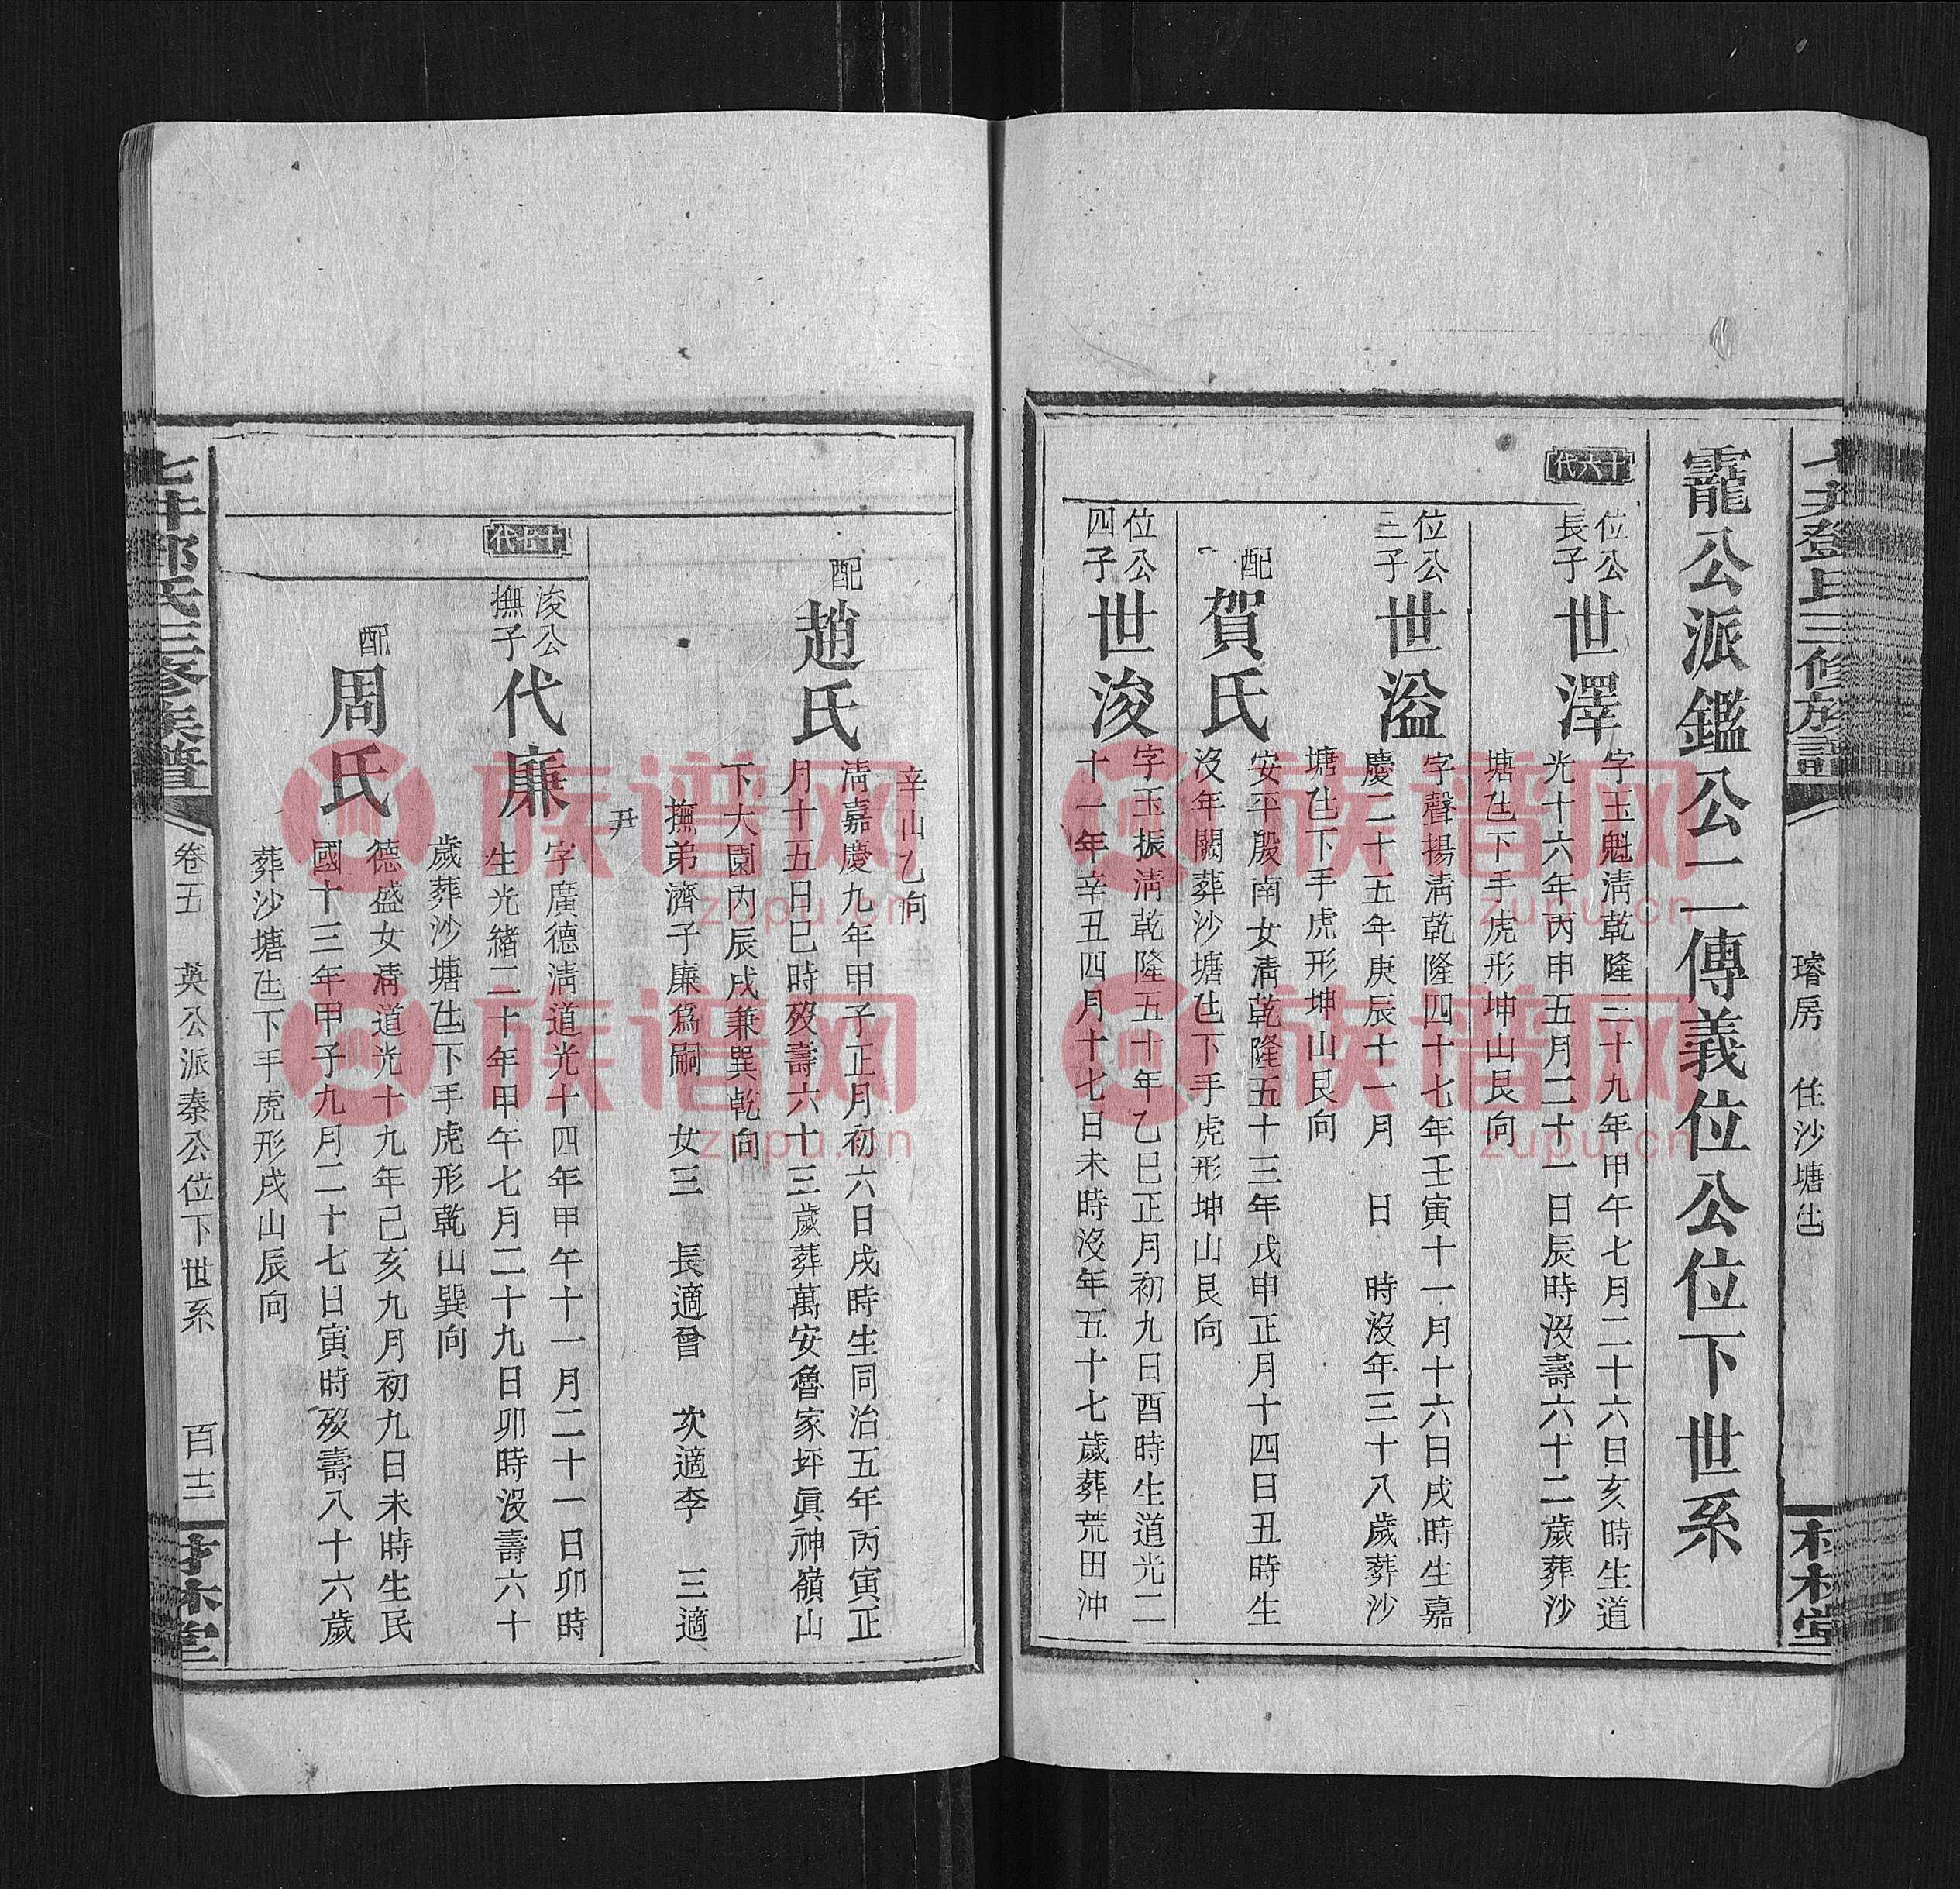 璿房　住沙塘凸
靇公派鑑公二傳義位公位下世系
十六代
位公
長子
世澤
字玉魁淸乾隆三十九年甲午七月二十六日亥時生道
光十六年丙申五月二十一日辰時沒壽六十二歲葬沙
塘凸下手虎形坤山艮向
位公
三子
世溢
字聲揚淸乾隆四十七年壬寅十一月十六日戌時生嘉
慶二十五年庚辰十一月　日　時沒年三十八歲葬沙
塘凸下手虎形坤山艮向
配
賀氏
安平殷南女淸乾隆五十三年戊申正月十四日丑時生
沒年闕葬沙塘凸下手虎形坤山艮向
位公
四子
世浚
字玉振淸乾隆五十年乙巳正月初九日酉時生道光二
十一年辛丑四月十七日未時沒年五十七歲葬荒田沖
辛山乙向
配
趙氏
淸嘉慶九年甲子正月初六日戌時生同治五年丙寅正
月十五日巳時歿壽六十三歲葬萬安魯家坪眞神嶺山
下大園內辰戌兼巽乾向
撫弟濟子廉爲嗣　女三　長適曾　次適李　三適
尹
十七代
浚公
撫子
代廉
字廣德淸道光十四年甲午十一月二十一日卯時
生光緒二十年甲午七月二十九日卯時沒壽六十
歲葬沙塘凸下手虎形乾山巽向
配
周氏
德盛女淸道光十九年己亥九月初九日未時生民
國十三年甲子九月二十七日寅時歿壽八十六歲
葬沙塘凸下手虎形戌山辰向
氏三修族譜
卷五　英公派秦公位下世系　百十三
族谱网
zupu.cn
族谱网
zupu.cn
族谱网
zupu.cn
族谱网
zupu.cn